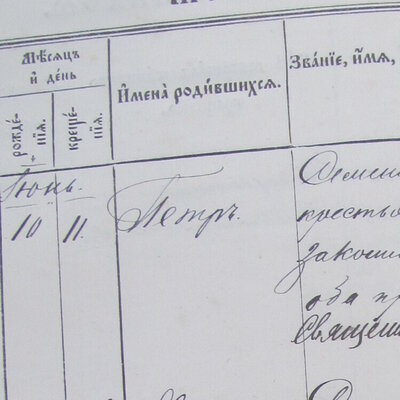 Мѣсяцъ
и҆ де́нь
И҆мена̀ роди́вшихся.
Зва́нїе, и҆́мя,
рожде́-
нїя.
креще́-
нїя.
Іюнь.
10
11.
Петръ.
кресть
закон
оба пр
Свящ